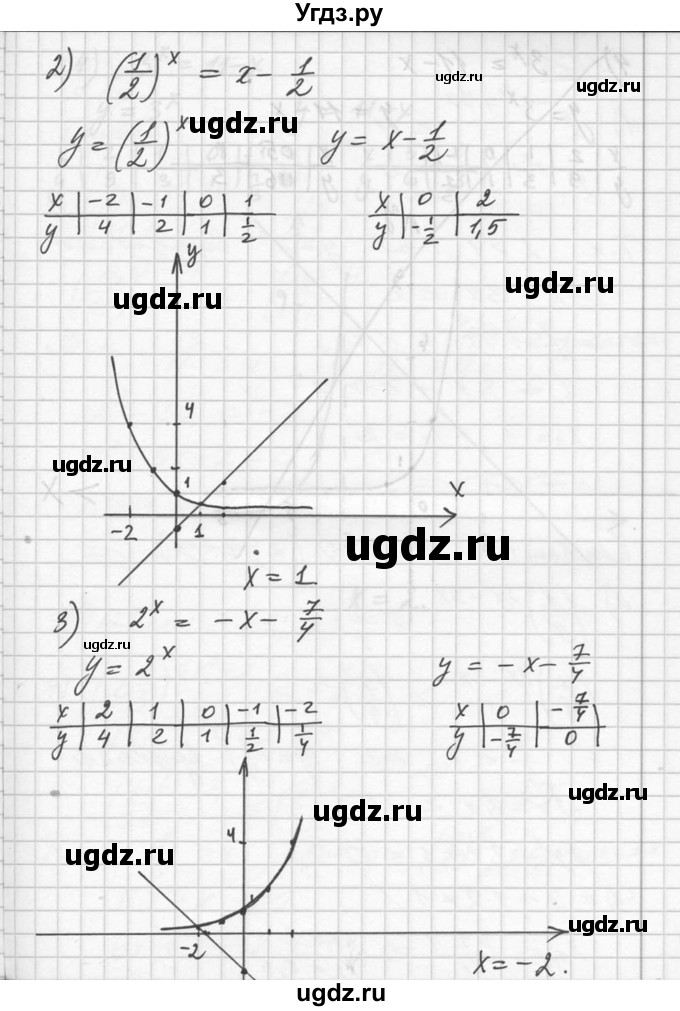 Угдз.ру
2) (1/2)^x = x - 1/2
ugdz.ru
ugdz.ru
y = (1/2)^x y = x - 1/2
ugdz.ru
x | -2 | -1 | 0 | 1
y | 4 | 2 | 1 | 1/2
x | 0 | 2
y | -1/2 | 1,5
y
ugdz.ru
ugdz.ru
4
ugdz.ru
1
x
-2 1
ugdz.ru
x = 1
3) 2^x = -x - 7/4
ugdz.ru
y = 2^x y = -x - 7/4
x | 2 | 1 | 0 | -1 | -2
y | 4 | 2 | 1 | 1/2 | 1/4
x | 0 | -7/4
y | -7/4 | 0
ugdz.ru
ugdz.ru
4
ugdz.ru
1
ugdz.ru
-2
x = -2.
ugdz.ru